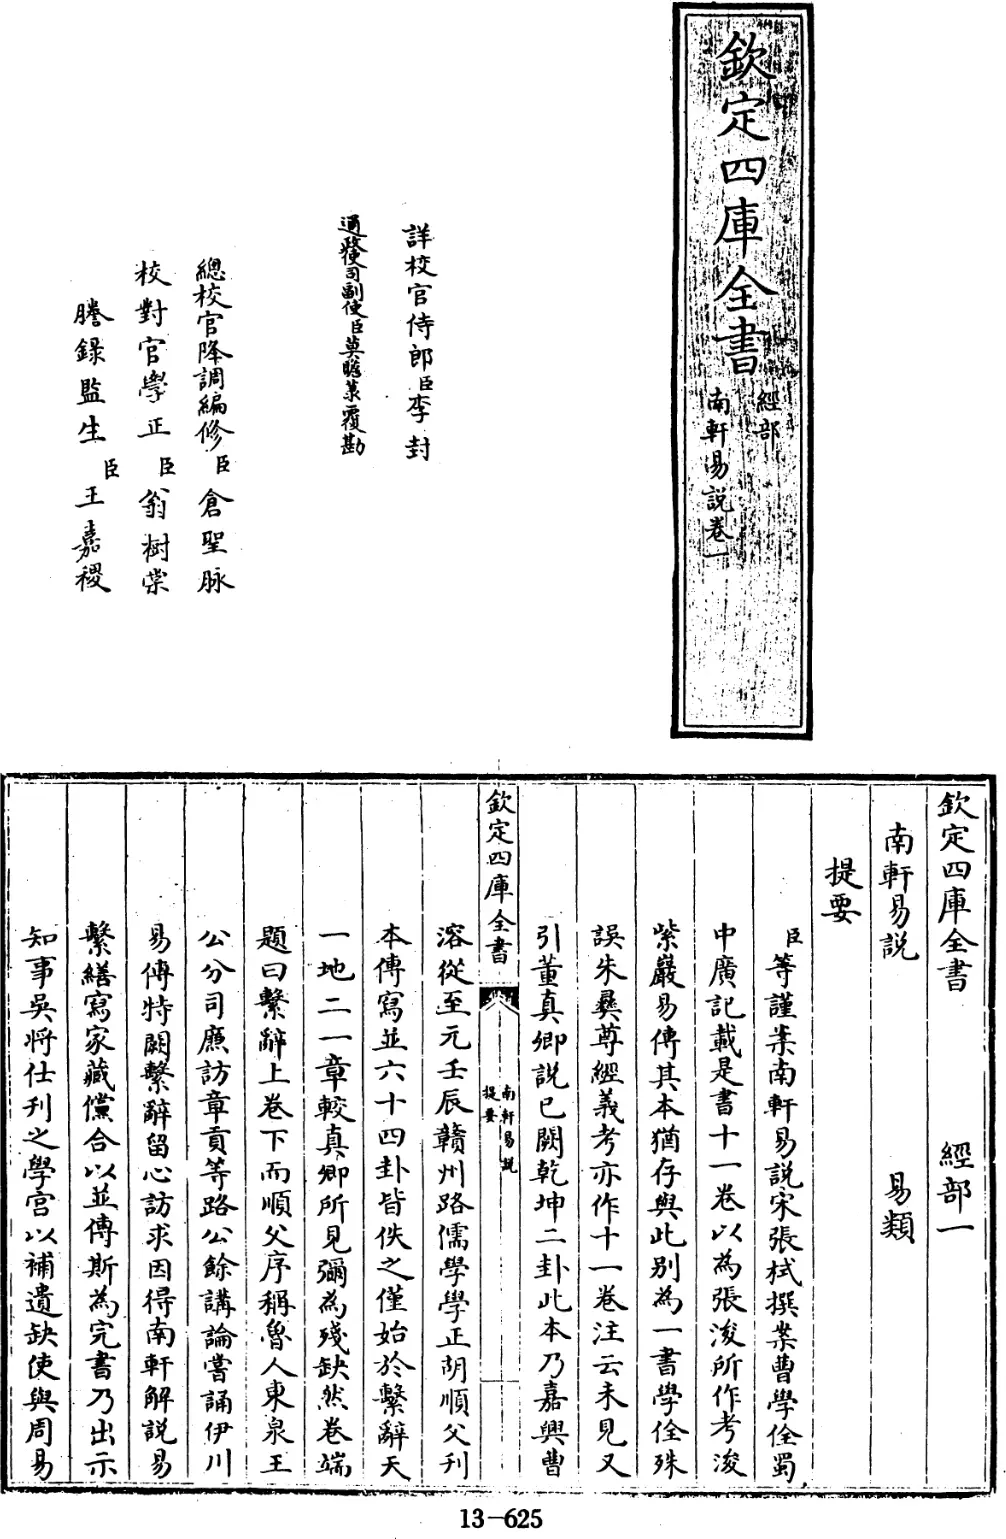 欽定四庫全書
經部
南軒易說卷一
詳校官侍郎臣李封
通政使司副使臣莫瞻菉覆勘
總校官降調編修臣倉聖脉
校對官學正臣翁樹棠
謄錄監生臣王嘉稷
欽定四庫全書　經部一
南軒易說　易類
提要
臣等謹案南軒易說宋張栻撰案曹學佺蜀
中廣記載是書十一卷以為張浚所作考浚
紫巖易傳其本猶存與此別為一書學佺殊
誤朱彝尊經義考亦作十一卷注云未見又
引董真卿說已闕乾坤二卦此本乃嘉興曹
欽定四庫全書
南軒易說
提要
溶從至元壬辰贛州路儒學學正胡順父刊
本傳寫並六十四卦皆佚之僅始於繫辭天
一地二一章較真卿所見彌為殘缺然卷端
題曰繫辭上卷下而順父序稱魯人東泉王
公分司廉訪章貢等路公餘講論嘗誦伊川
易傳特闕繫辭留心訪求因得南軒解說易
繫繕寫家藏儻合以並傳斯為完書乃出示
知事吳將仕刊之學宮以補遺缺使與周易
13-625